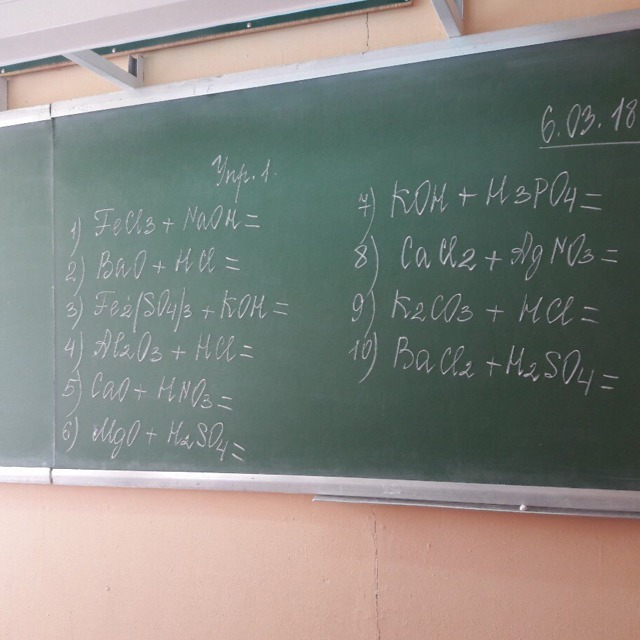 6.03.18
Упр. 1.
1) FeCl3 + NaOH =
2) BaO + HCl =
3) Fe2(SO4)3 + KOH =
4) Al2O3 + HCl =
5) CaO + HNO3 =
6) MgO + H2SO4 =
7) KOH + H3PO4 =
8) CaCl2 + AgNO3 =
9) K2CO3 + HCl =
10) BaCl2 + H2SO4 =